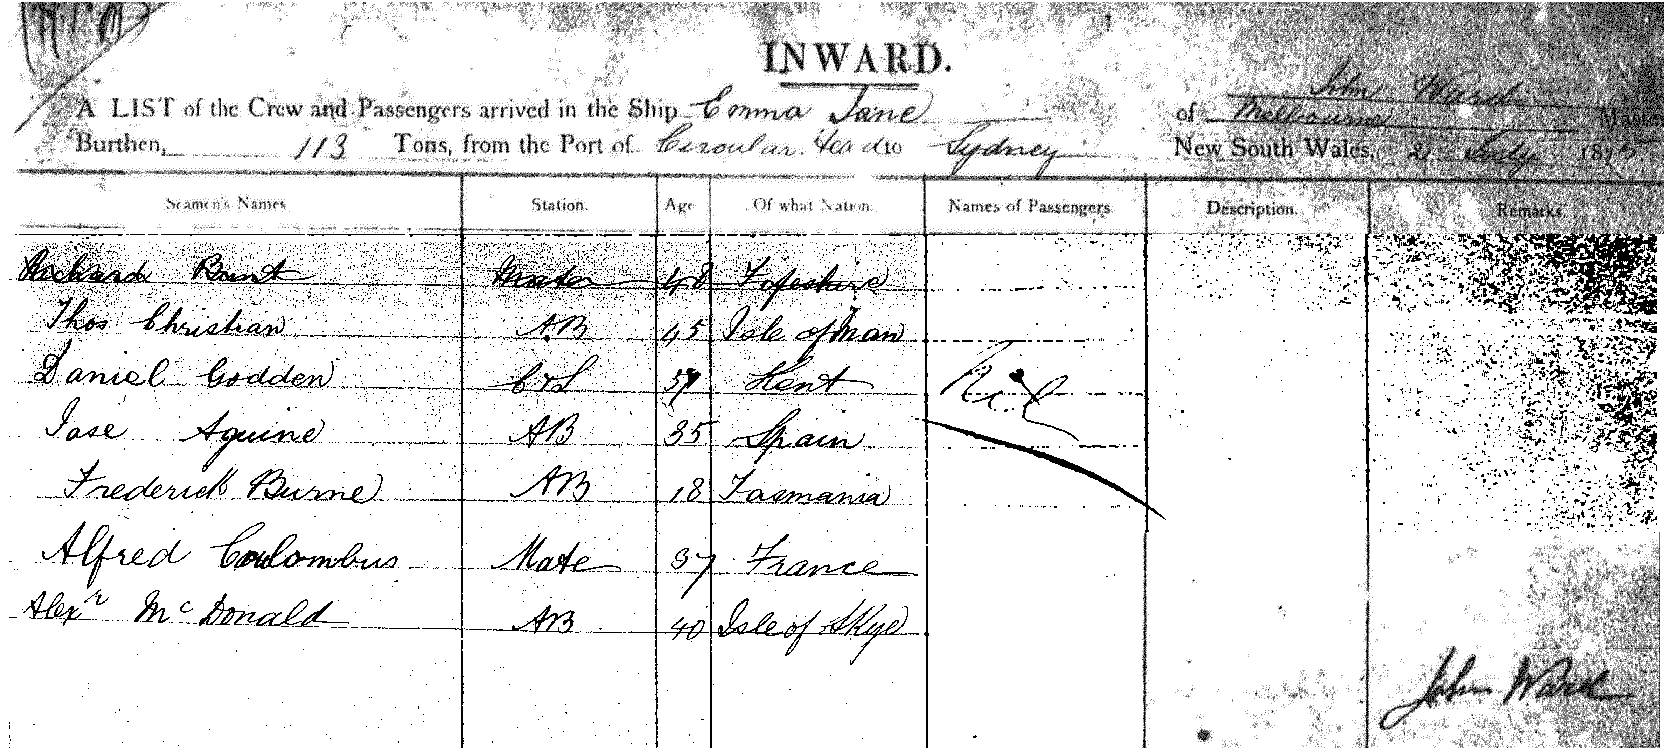 INWARD.
John Ward
A LIST of the Crew and Passengers arrived in the Ship Emma Jane of Melbourne Master
Burthen, 113 Tons, from the Port of Circular Head to Sydney New South Wales, 21 July 187
Seamen's Names Station. Age Of what Nation. Names of Passengers Description. Remarks
Richard 48
Thos Christian AB 45 Isle of Man
Daniel Godden C&S Kent Nil
Jose Aguine AB 35 Spain
Frederick Burne AB 18 Tasmania
Alfred Coulombus Mate 37 France
Alexr McDonald AB 40 Isle of Skye
John Ward